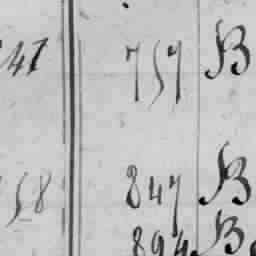 41 757 B
58 847 B
894 B